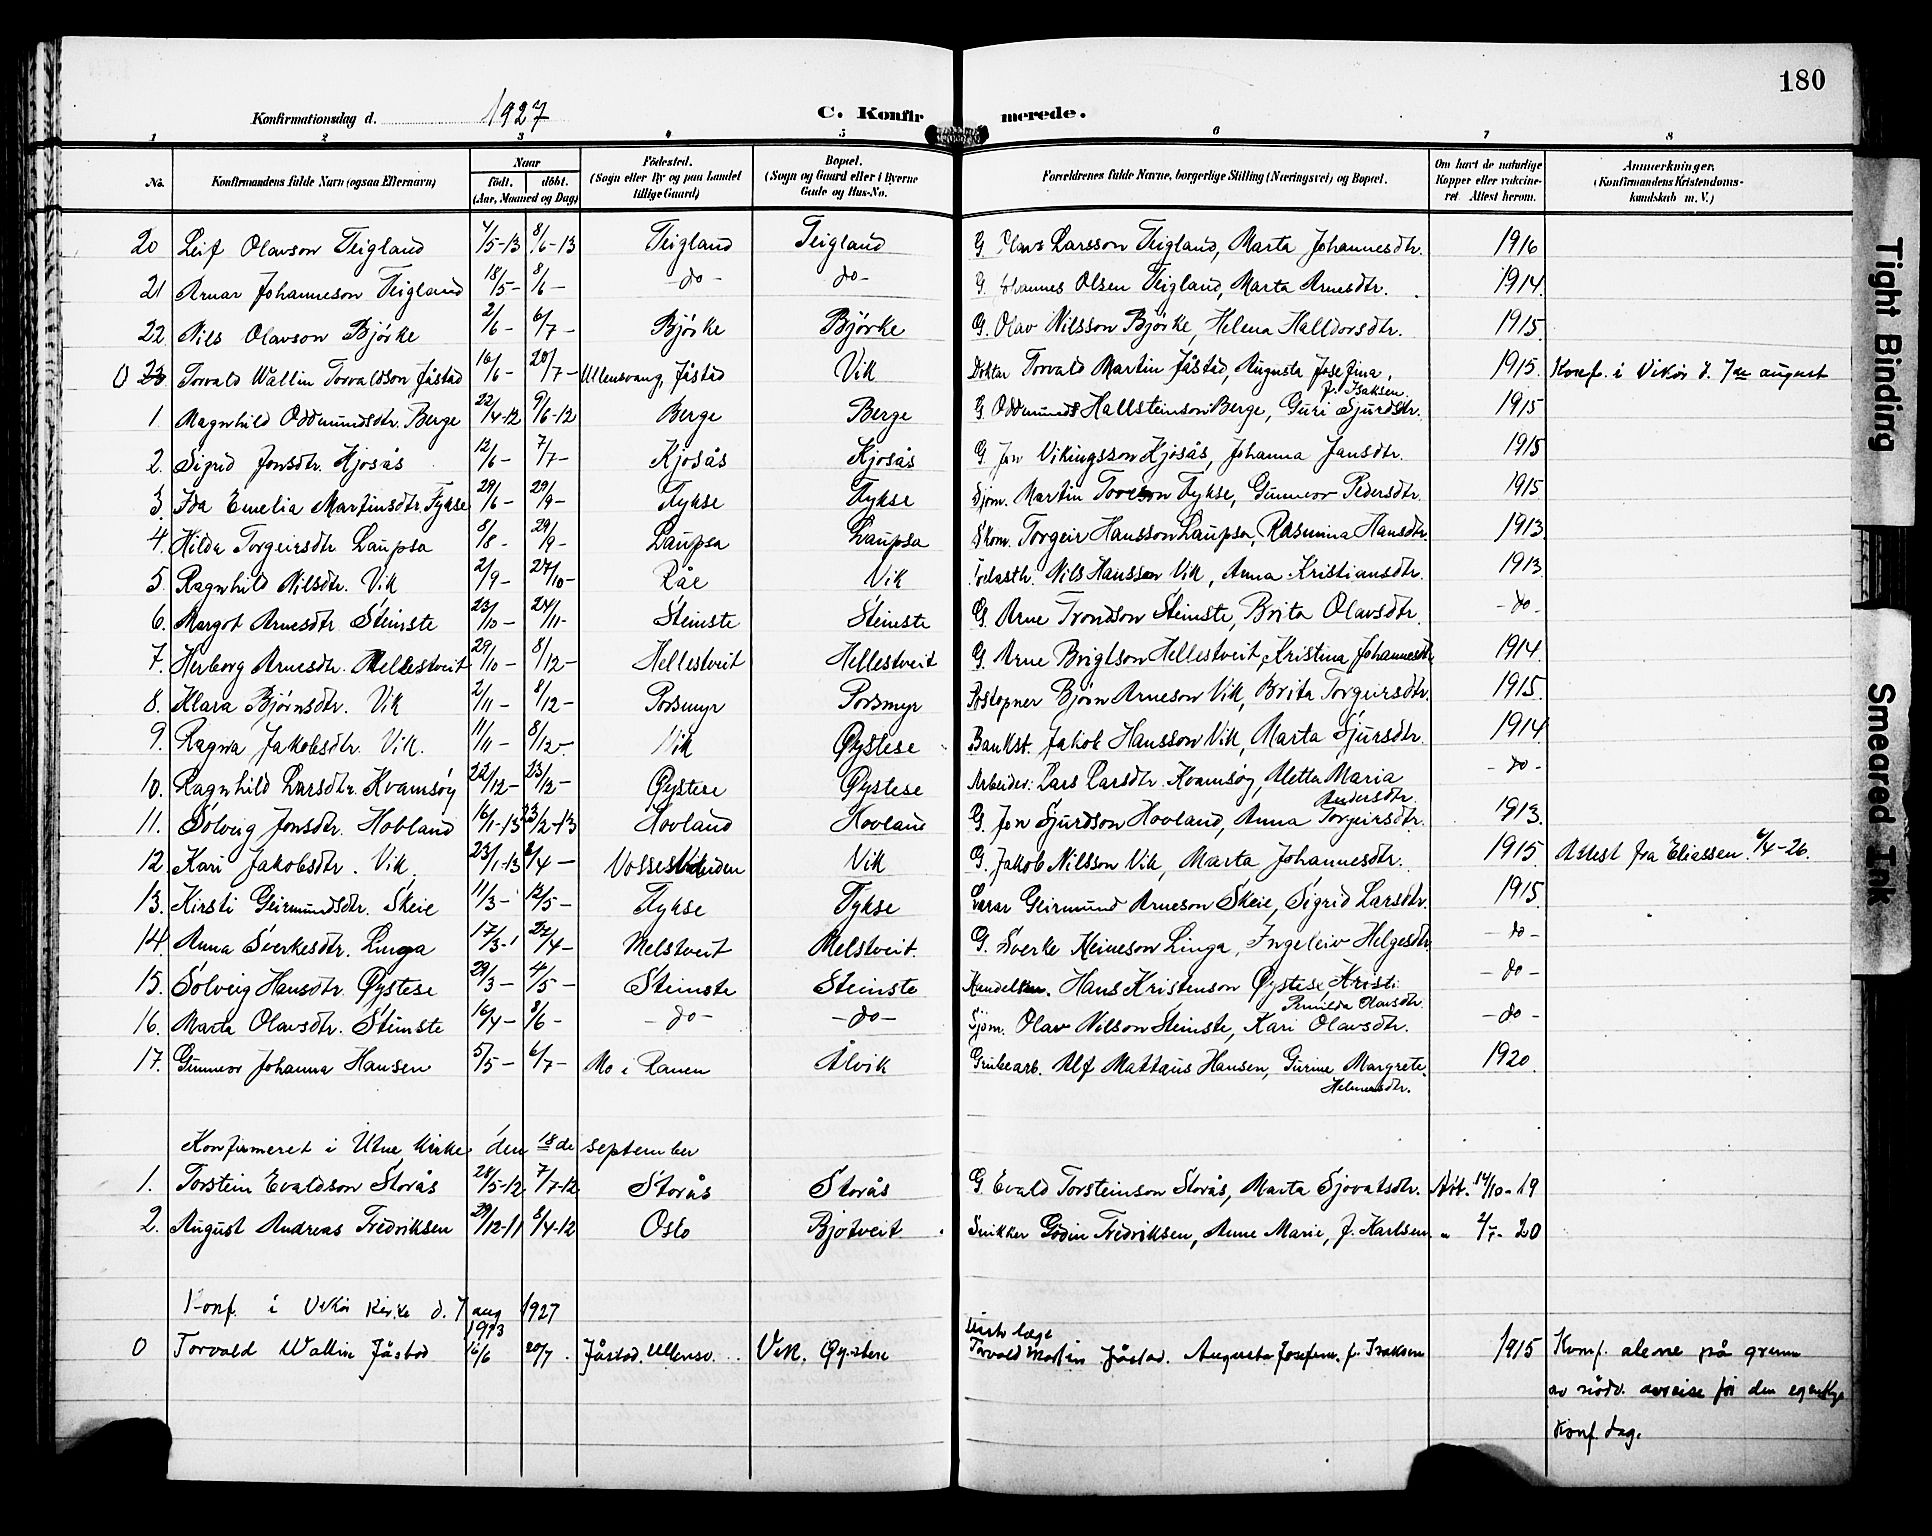 180
Konfirmationsdag d. 1927 C. Konfirmerede.
1 2 3 4 5 6 7 8
No. Konfirmandens fulde Navn (ogsaa Efternavn) Naar født. døbt. (Aar, Maaned og Dag) Fødested. (Sogn eller By og paa Landet tillige Gaard) Bopæl. (Sogn og Gaard eller i Byerne Gade og Hus-No. Forældrenes fulde Navne, borgerlige Stilling (Næringsvei) og Bopæl. Om havt de naturlige Kopper eller vakcineret Attest herom. Anmerkninger. (Konfirmandens Kristendomskundskab m. V.)
20 Leif Olavson Teigland 4/5-13 8/6-13 Teigland Teigland G. Olavs Larsson Teigland, Marta Johannesdtr. 1916
21 Arnar Johanneson Teigland 18/5- 8/6- -do- -do- G. Johannes Olsen Teigland, Marta Arnesdtr. 1914
22 Nils Olavson Bjørke 2/6- 6/7- Bjørke Bjørke G. Olav Nilsson Bjørke, Helena Halldorsdtr. 1915
0 23 Torvald Wallin Torvaldson Jåstad 16/6- 20/7- Ullensvang, Jåstad Vik Doktar Torvald Martin Jåstad, Augusta Josefina, f. Isaksen 1915 Konf. i Vikør d. 7de august
1. Magnhild Oddmundsdtr. Berge 22/4-12 9/6-12 Berge Berge G. Oddmunds Hallsteinson Berge, Guri Sjurdsdtr. 1915
2. Sigrid Jonsdtr. Kjosås 12/6- 7/7- Kjosås Kjosås G. Jon Vikingsson Kjosås, Johanna Jansdtr. 1915
3. Ida Emelia Martinsdtr. Fykse 29/6- 29/9- Fykse Fykse Sjøm. Martin Toreson Fykse, Gunnvor Pedersdtr. 1915
4. Hilda Torgeirsdtr. Laupsa 8/8- 29/9- Laupsa Laupsa Skom. Torgeir Hansson Laupsa, Rasmina Hansdtr. 1913
5. Ragnhild Nilsdtr. Vik 2/9- 27/10- Råe Vik Nils Hansson Vik, Anna Kristiansdtr. 1913
6. Margot Arnesdtr. Steinstø 23/10- 24/11- Steinstø Steinstø G. Arne Trondson Steinstø, Brita Olavsdtr. -do-
7. Herborg Arnesdtr. Hellestveit 29/10- 8/12- Hellestveit Hellestveit G. Arne Brigtson Hellestveit, Kristina Johannesdtr. 1914
8. Klara Bjørnsdtr. Vik 2/11- 8/12- Porsmyr Porsmyr Postopner Bjørn Arneson Vik, Brita Torgeirsdtr. 1915
9. Ragna Jakobsdtr. Vik. 11/11- 8/12- Vik Øystese Bankst. Jakob Hansson Vik, Marta Sjursdtr. 1914
10. Ragnhild Larsdtr. Kvamsøy 22/12- 23/12- Øystese Øystese Arbeider. Lars Larsdtr. Kvamsøy, Mette Maria Andersdtr. -do-
11. Solveig Jonsdtr. Hovland 16/1-13 23/2-13 Hovland Hovland G. Jon Sjurdson Hovland, Anna Torgeirsdtr. 1913
12 Kari Jakobsdtr. Vik 23/1-13 6/4- Vik G. Jakob Nilsson Vik, Marta Johannesdtr. 1915 Attest fra Eliassen 6/4-26.
13. Kirsti Geirmundsdtr. Skeie 11/3- 12/5- Fykse Fykse Lærar Geirmund Arneson Skeie, Sigrid Larsdtr. 1915
14. Anna Sverkesdtr. Linga 17/3- 27/4- Melstveit Melstveit. G. Sverke Heineson Linga, Ingeleiv Helgesdtr. -do-
15. Solveig Hansdtr. Øystese 29/3- 4/5- Steinstø Steinstø Handelsm. Hans Kristenson Øystese Kristi Pernilda Olavsdtr. -do-
16. Marta Olavsdtr. Steinstø 16/4- 8/6- -do- -do- Sjøm. Olav Nilson Steinstø, Kari Olavsdtr. -do-
17. Gunnvor Johanna Hansen 5/5- 6/7- Mo i Ranen Ålvik Grubearb. Alf Mattæus Hansen, Gurine Margrete Helmersdtr. 1920
Konfirmeret i Utne kirke den 18de september
1. Torstein Evaldson Storås 28/5-12 7/7-12 Storås Storås G. Evald Torsteinson Storås, Marta Sjovatsdtr. Att. 14/10-19
2. August Andreas Fredriksen 29/12-11 8/4-12 Oslo Bjotveit Snikker Godin Fredriksen, Anne Marie, f. Karlsen " 20
Konf. i Vikør kirke d. 7 aug 1927
0 Torvald Wallin Jåstad 1913 16/6 20/7 Jåstad, Ullensv. Vik. Øystese læge Torvald Martin Jåstad. Augusta Josefine f. Isaksen 1915 Konf. alene på grunn
av nødv. avreise før den egentlige
konf. dag.
Tight Binding
Smeared Ink